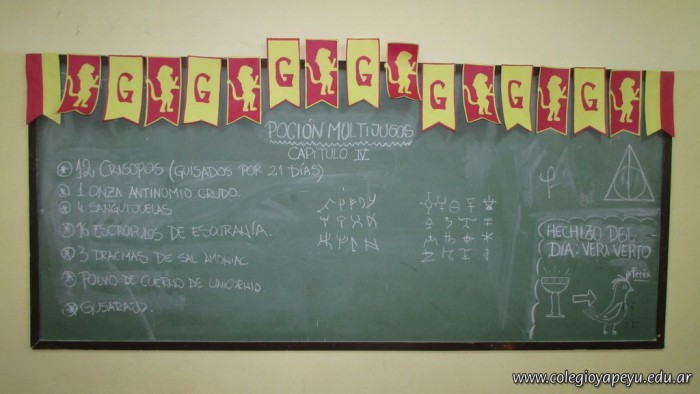 G G G G G G G
POCIÓN MULTIJUGOS
CAPITULO IV
12 CRISOPOS (GUISADOS POR 21 DÍAS)
1 ONZA ANTINOMIO CRUDO.
4 SANGUIJUELAS
16 ESCRÚPULOS DE
3 DRACMAS DE SAL AMONIAC
POLVO DE CUERNO DE UNICORNIO
HECHIZO DEL
DIA: VERA VERTO
www.colegioyapeyu.edu.ar